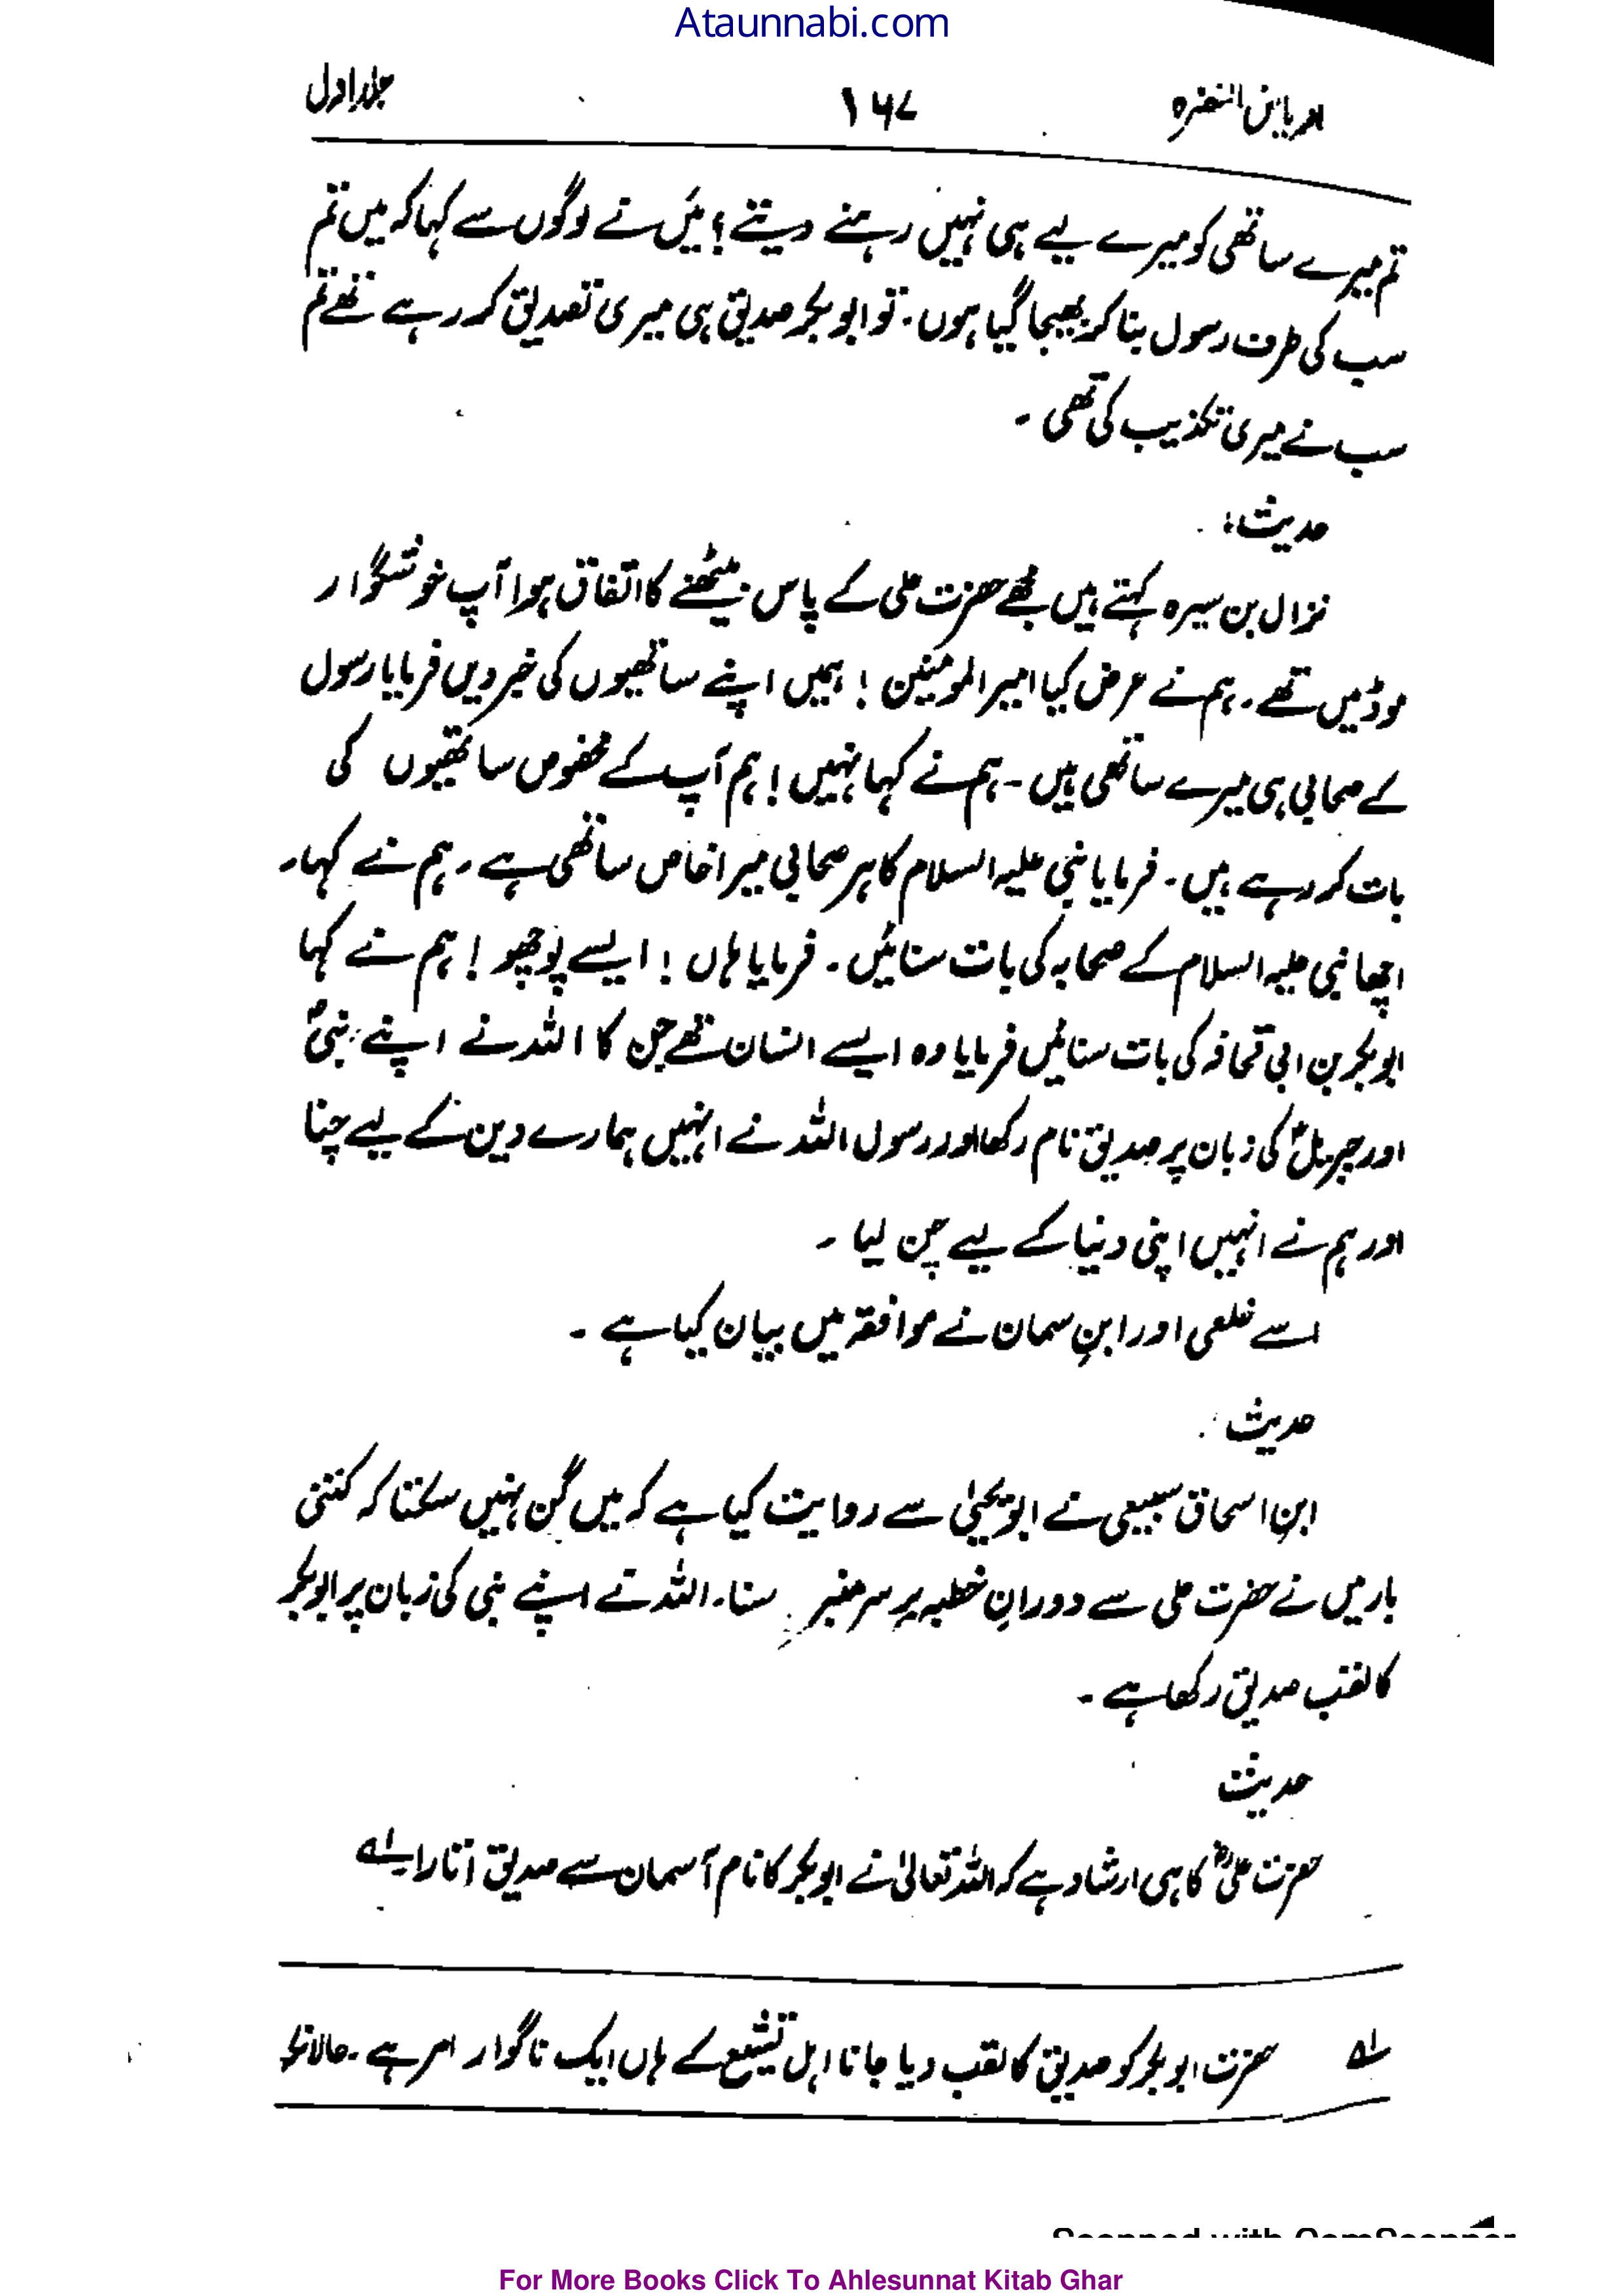 Ataunnabi.com
الریاض النضرہ ۱۶۷ جلد اول
تم میرے ساتھی کو میرے لیے ہی نہیں رہنے دیتے؟ میں نے لوگوں سے کہا کہ میں تم
سب کی طرف رسول بنا کر بھیجا گیا ہوں۔ تو ابو بکر صدیق ہی میری تصدیق کر رہے تھے تم
سب نے میری تکذیب کی تھی ۔
حدیث:
نزال بن سبرہ کہتے ہیں مجھے حضرت علی کے پاس بیٹھنے کا اتفاق ہوا آپ خوشگوار
موڈ میں تھے۔ ہم نے عرض کیا امیر المومنین ! ہمیں اپنے ساتھیوں کی خبر دیں فرمایا رسول
کے صحابی ہی میرے ساتھی ہیں ۔ ہم نے کہا نہیں ! ہم آپ کے مخصوص ساتھیوں کی
بات کر رہے ہیں ۔ فرمایا نبی علیہ السلام کا ہر صحابی میرا خاص ساتھی ہے ۔ ہم نے کہا۔
اچھا نبی علیہ السلام کے صحابہ کی بات سنائیں ۔ فرمایا ہاں ! ایسے پوچھو ! ہم نے کہا
ابو بکر بن ابی قحافہ کی بات سنائیں فرمایا وہ ایسے انسان تھے جن کا اللہ نے اپنے نبیؐ
اور جبریلؑ کی زبان پر صدیق نام رکھا اور رسول اللہ نے انہیں ہمارے دین کے لیے چنا
اور ہم نے انہیں اپنی دنیا کے لیے چن لیا ۔
اسے خلعی اور ابنِ سمان نے موافقہ میں بیان کیا ہے ۔
حدیث :
ابنِ اسحاق سبیعی نے ابو یحییٰ سے روایت کیا ہے کہ میں گن نہیں سکتا کہ کتنی
بار میں نے حضرت علی سے دورانِ خطبہ پر سر منبر سنا۔ اللہ نے اپنے نبی کی زبان پر ابو بکر
کا لقب صدیق رکھا ہے ۔
حدیث
حضرت علیؓ کا ہی ارشاد ہے کہ اللہ تعالیٰ نے ابو بکر کا نام آسمان سے صدیق اتارا۔ لہ
لہ حضرت ابو بکر کو صدیق کا لقب دیا جانا اہل تشیع کے ہاں ایک ناگوار امر ہے ۔ حالانکہ
Scanned with CamScanner
For More Books Click To Ahlesunnat Kitab Ghar